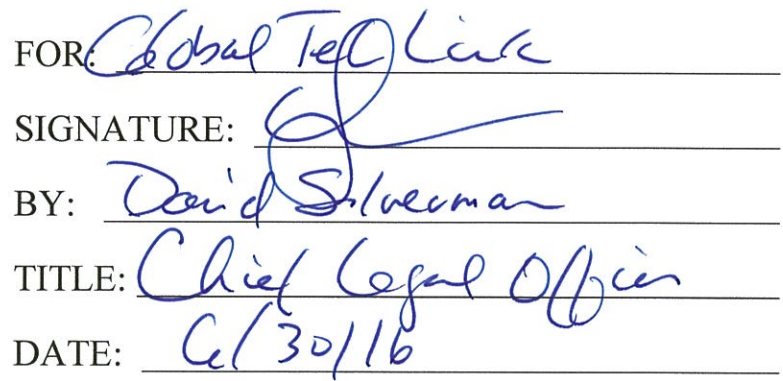 FOR: Global Tel Link
SIGNATURE:
BY: David Silverman
TITLE: Chief Legal Officer
DATE: 6/30/16